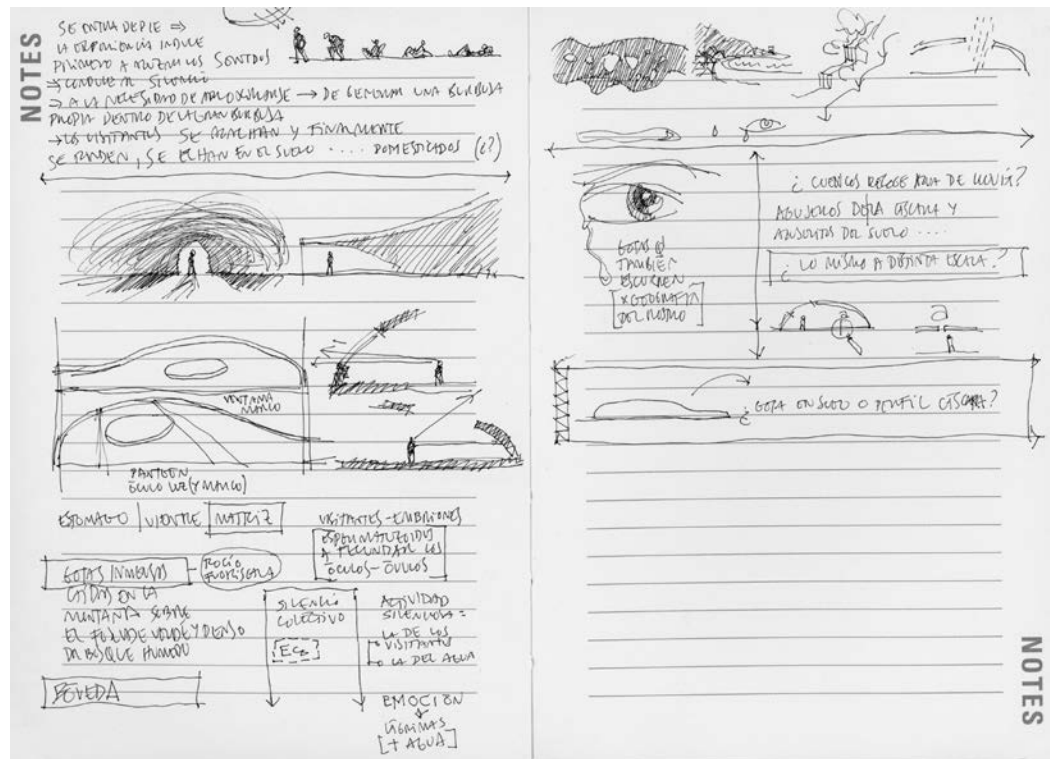 NOTES
SE ENTRA DE PIE ⇒
LA EXPERIENCIA INDUCE
PRIMERO A AGUZAR LOS SENTIDOS
⇒ CONDUCE AL SILENCIO
⇒ A LA NECESIDAD DE → DE GENERAR UNA BURBUJA
PROPIA DENTRO DE LA GRAN BURBUJA
→ LOS VISITANTES SE AGACHAN Y FINALMENTE
SE RINDEN, SE ECHAN EN EL SUELO .... DOMESTICADOS (¿?)
VENTANA
MARCO
PANTEÓN
ÓCULO LUZ (Y MARCO)
ESTOMAGO | VIENTRE | MATRIZ
VISITANTES - EMBRIONES
ESPERMATOZOIDES
A FECUNDAR LOS
ÓCULOS - ÓVULOS
GOTAS INMENSAS - ROCÍO
CAÍDAS EN LA
MONTAÑA SOBRE
EL FOLLAJE VERDE Y DENSO
DE BOSQUE HÚMEDO
SILENCIO
COLECTIVO
[Eco]
ACTIVIDAD
SILENCIOSA =
LA DE LOS
VISITANTES
O LA DEL AGUA
BÓVEDA
EMOCIÓN
LÁGRIMAS
[+ AGUA]
¿ CUENCOS RECOGE AGUA DE LLUVIA?
AGUJEROS DE LA CÁSCARA Y
AGUJEROS DEL SUELO ....
¿ LO MISMO A DISTINTA ESCALA?
GOTAS Q
TAMBIÉN
ESCURREN
X GEOGRAFÍA
DEL ROSTRO
a
a
¿ GOTA EN SUELO O PERFIL CÁSCARA?
NOTES